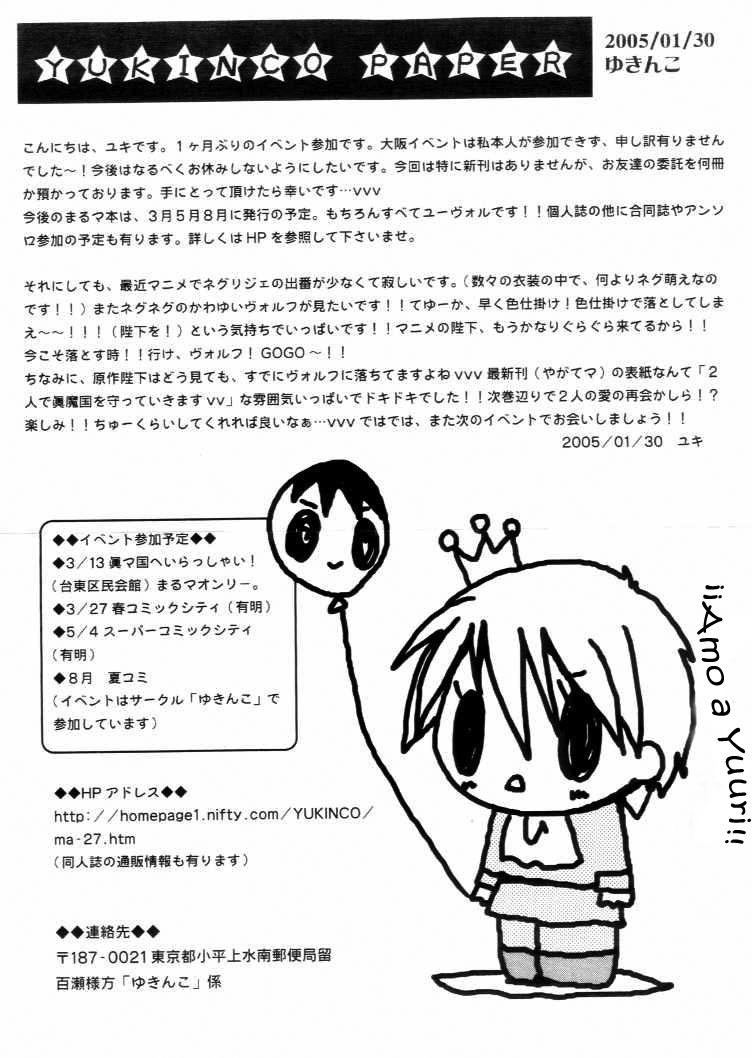 YUKINCO PAPER
2005/01/30
ゆきんこ
こんにちは、ユキです。１ヶ月ぶりのイベント参加です。大阪イベントは私本人が参加できず、申し訳有りません
でした～！今後はなるべくお休みしないようにしたいです。今回は特に新刊はありませんが、お友達の委託を何冊
か預かっております。手にとって頂けたら幸いです…vvv
今後のまるマ本は、３月５月８月に発行の予定。もちろんすべてユーヴォルです！！個人誌の他に合同誌やアンソ
ロ参加の予定も有ります。詳しくはHPを参照して下さいませ。
それにしても、最近マニメでネグリジェの出番が少なくて寂しいです。（数々の衣装の中で、何よりネグ萌えなの
です！！）またネグネグのかわゆいヴォルフが見たいです！！てゆーか、早く色仕掛け！色仕掛けで落としてしま
え～～！！！（陛下を！）という気持ちでいっぱいです！！マニメの陛下、もうかなりぐらぐら来てるから！！
今こそ落とす時！！行け、ヴォルフ！GOGO～！！
ちなみに、原作陛下はどう見ても、すでにヴォルフに落ちてますよねvvv 最新刊（やがてマ）の表紙なんて「２
人で眞魔国を守っていきますvv」な雰囲気いっぱいでドキドキでした！！次巻辺りで２人の愛の再会かしら！？
楽しみ！！ちゅーくらいしてくれれば良いなぁ…vvvではでは、また次のイベントでお会いしましょう！！
2005／01／30　ユキ
◆◆イベント参加予定◆◆
◆3／13 眞マ国へいらっしゃい！
（台東区民会館）まるマオンリー。
◆3／27 春コミックシティ（有明）
◆5／4 スーパーコミックシティ
（有明）
◆８月　夏コミ
（イベントはサークル「ゆきんこ」で
参加しています）
¡¡Amo a Yuuri!!
◆◆HPアドレス◆◆
http://homepage1.nifty.com/YUKINCO/
ma-27.htm
（同人誌の通販情報も有ります）
◆◆連絡先◆◆
〒187-0021 東京都小平上水南郵便局留
百瀬様方「ゆきんこ」係